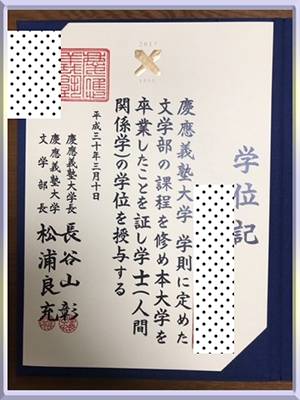 学位記
慶應義塾大学 学則に定めた
文学部の課程を修め本大学を
卒業したことを証し学士(人間
関係学)の学位を授与する
平成三十年三月十日
慶應義塾大学長 長谷山彰
慶應義塾大学
文学部長 松浦良充